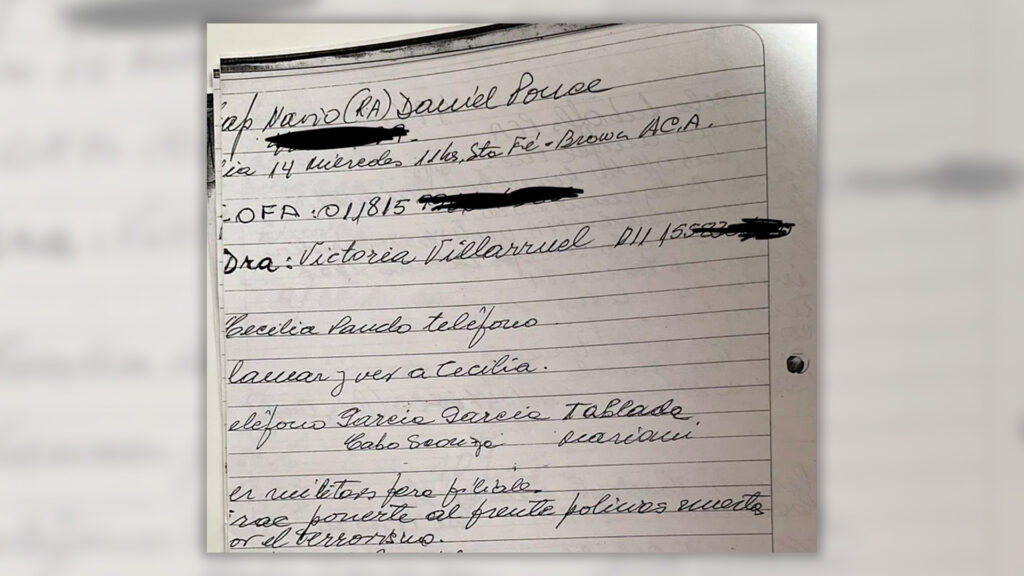 ap Navio (RA) Daniel Ponce
ia 14 Miércoles 11hs, Sta Fé - Brown A.C.A.
OFA: 011815
Dra: Victoria Villarruel 011155
Cecilia Pando teléfono
lamar y ver a Cecilia.
eléfono Garcia Garcia Tablada
Cabo
er militares para filiale
ponerte al frente policias muertos
or el terrorismo.